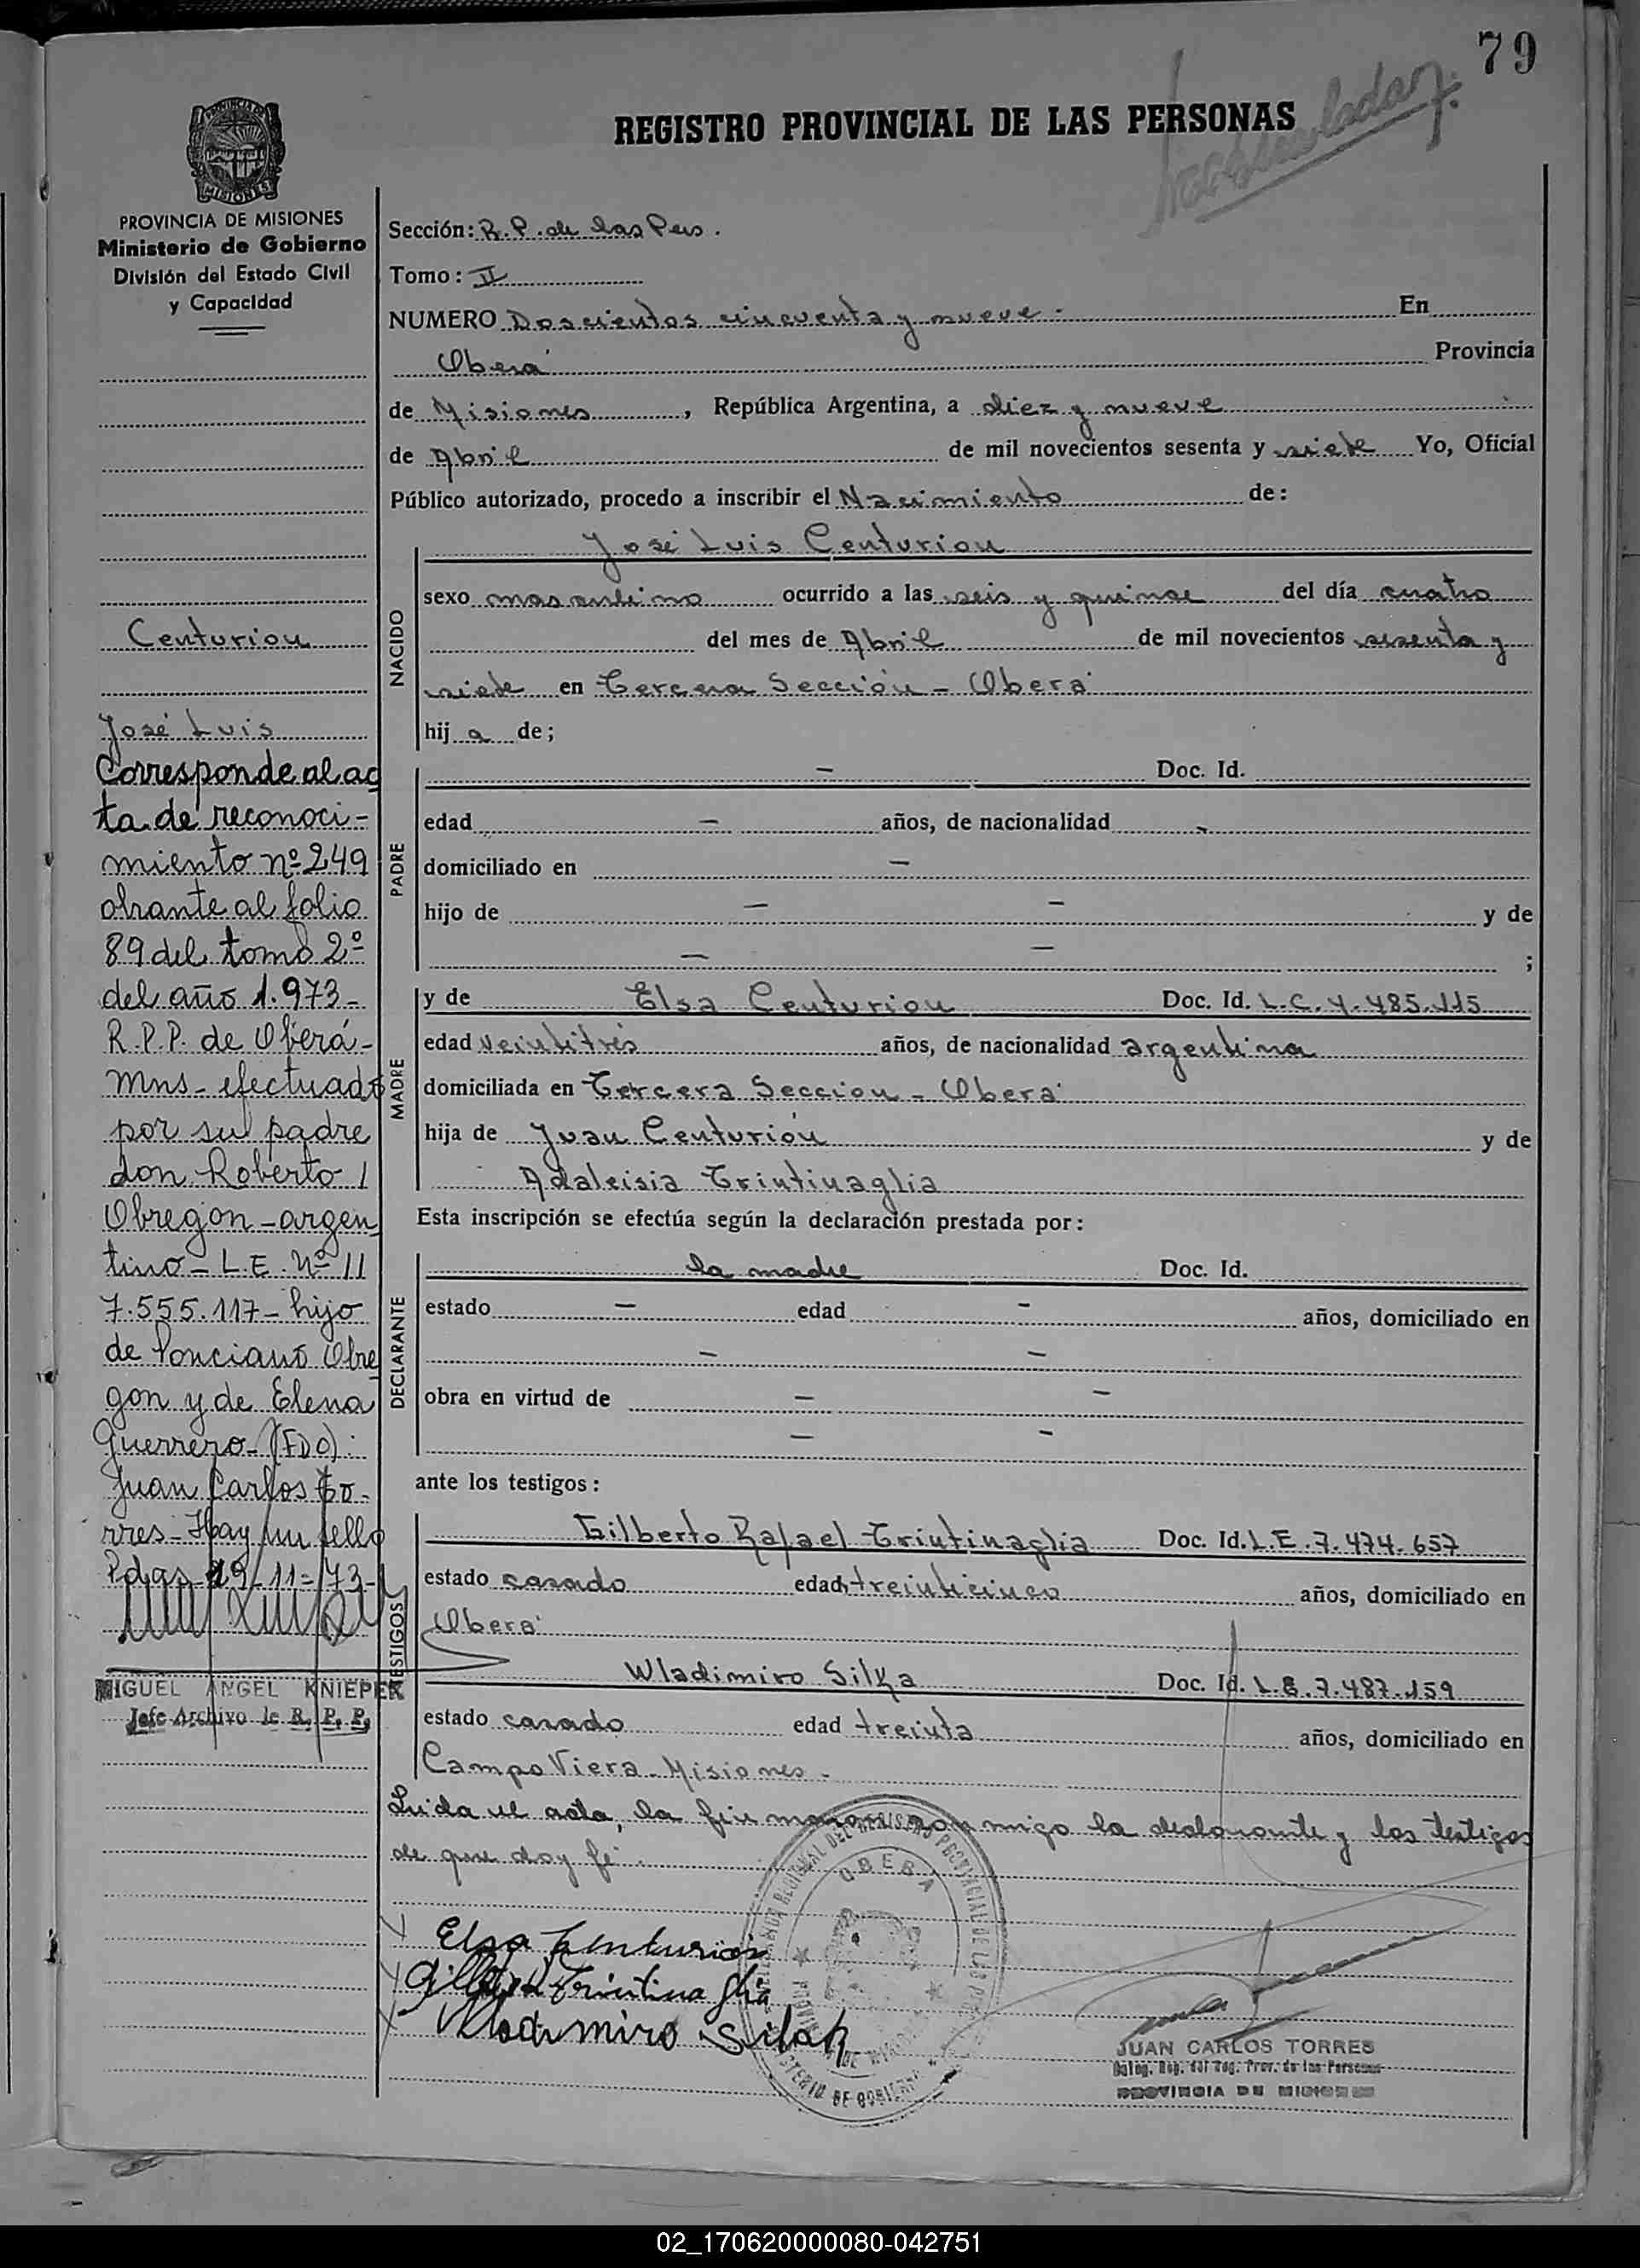 79
REGISTRO PROVINCIAL DE LAS PERSONAS
PROVINCIA DE MISIONES
Ministerio de Gobierno
División del Estado Civil
y Capacidad
Centurion
José Luis
Corresponde al ac
ta de reconoci-
miento nº 249
obrante al folio
89 del tomo 2º
del año 1.973-
R.P.P. de Oberá-
Mns - efectuado
por su padre
don Roberto /
Obregon - argen
tino - L.E. Nº //
7.555.117 - hijo
de Ponciano Obre
gon y de Elena
Guerrero - (FDO):
Juan Carlos To-
rres - Hay un sello
Pdas - 19-11-73-
MIGUEL ANGEL KNIEPER
Jefe Archivo de R. P. P.
Sección: R.P. de las Pers.
Tomo: II
NUMERO Doscientos cincuenta y nueve - En
Oberá Provincia
de Misiones, República Argentina, a diez y nueve
de Abril de mil novecientos sesenta y siete Yo, Oficial
Público autorizado, procedo a inscribir el Nacimiento de:
NACIDO
José Luis Centurion
sexo masculino ocurrido a las seis y quince del día cuatro
del mes de Abril de mil novecientos sesenta y
siete en Tercera Sección - Oberá
hij a de;
PADRE
- Doc. Id.
edad - años, de nacionalidad -
domiciliado en -
hijo de - - y de
- - ;
MADRE
y de Elsa Centurion Doc. Id. L.C. 4.485.115
edad veintitrés años, de nacionalidad argentina
domiciliada en Tercera Sección - Oberá
hija de Juan Centurión y de
Adaleisia Trintinaglia
Esta inscripción se efectúa según la declaración prestada por:
DECLARANTE
la madre Doc. Id.
estado - edad - años, domiciliado en
- -
obra en virtud de - -
- -
ante los testigos:
TESTIGOS
Gilberto Rafael Trintinaglia Doc. Id. L.E. 7.474.657
estado casado edad treinticinco años, domiciliado en
Oberá
Wladimiro Silka Doc. Id. L.E. 7.487.159
estado casado edad treinta años, domiciliado en
Campo Viera - Misiones -
Leida el acta, la firman conmigo la declarante y los testigos
de que doy fe.
OBERA
Elsa Centurion
Trintinaglia
Wladimiro Silak
JUAN CARLOS TORRES
PROVINCIA DE MISIONES
02_170620000080-042751